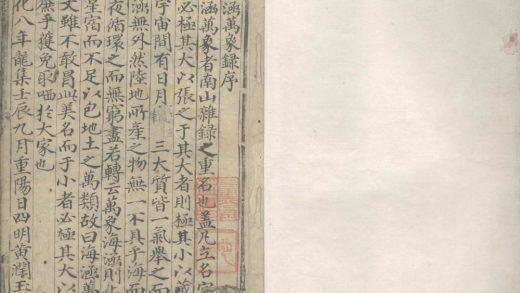 涵萬象錄序
涵萬象者南山雜錄之重名也蓋凡立名
必極其大以張之于其大者則極其小以藏
宇宙間有日月 三大質皆一氣舉之而
涵無外然陸地所產之物無一不具于海而
夜循環之而無窮盡若轉云萬象海涵則止
星宿而不足以包地土之萬類故曰海涵萬
文雖不敢冒此美名而于小者必極其大以
庶乎獲免哂於大家也
化八年龍集壬辰九月重陽日四明黃潤玉